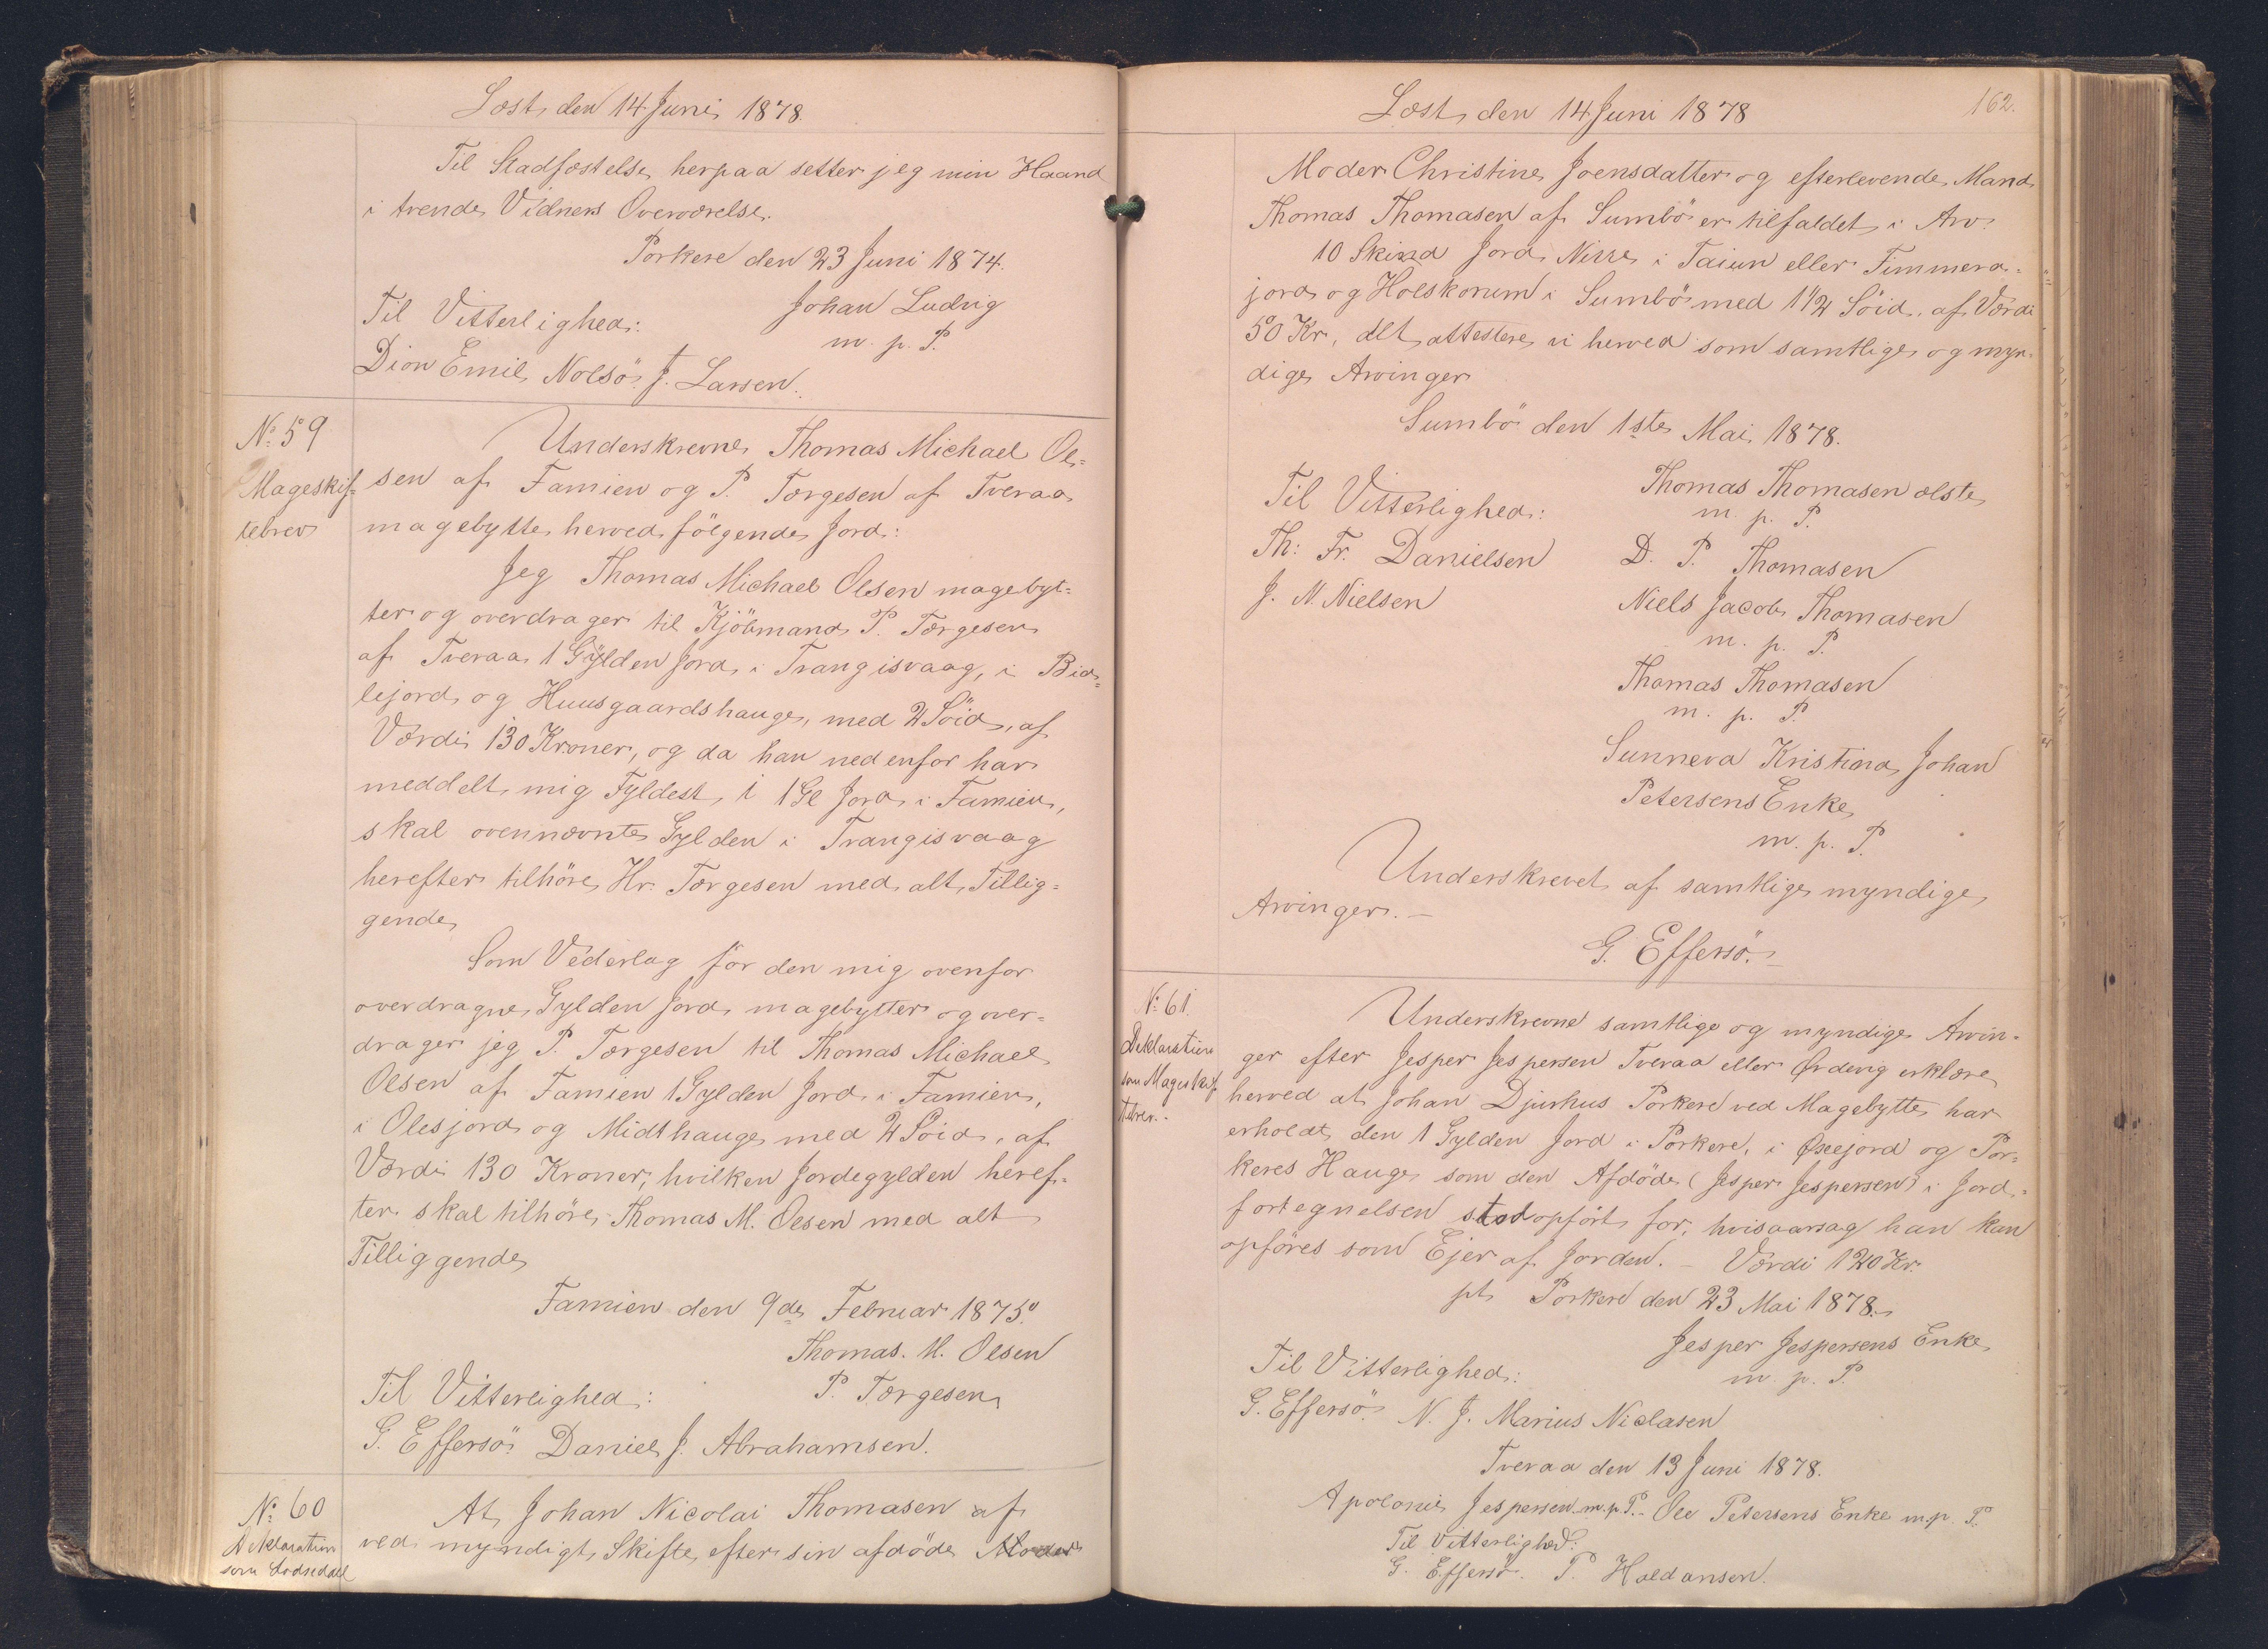 Læst den 14 Juni 1878.
Til Stadfæstelse herpaa setter jeg min Haand
i tvende Vidners Overværelse.
Porkere den 23 Juni 1874.
Johan Ludvig
m. p. P.
Til Vitterlighed:
Dion Emil Nolsö. J. Larsen.
No 59
Mageskif-
tebrev
Underskrevne Thomas Michael Ol-
sen af Famien og P. Torgesen af Tveraa
magebytte herved fölgende Jord:
Jeg Thomas Michael Olsen magebyt-
ter og overdrager til Kjöbmand P. Torgesen
af Tveraa 1 Gylden Jord i Trangisvaag, i Bia-
lejord og Huusgaardshauge, med 2 Söid, af
Værdi 130 Kroner, og da han nedenfor har
meddelt mig Fyldest i 1 Gl Jord i Famien,
skal ovennævnte Gylden i Trangisvaag
herefter tilhöre Hr. Torgesen med alt Tillig-
gende
Som Vederlag för den mig ovenfor
overdragne Gylden Jord magebytter og over-
drager jeg P. Torgesen til Thomas Michael
Olsen af Famien 1 Gylden Jord i Famien,
i Olesjord og Midthauge med 2 Söid, af
Værdi 130 Kroner, hvilken Jordegylden heref-
ter skal tilhöre Thomas M. Olsen med alt
Tilliggende
Famien den 9de Februar 1875.
Thomas. M. Olsen
P. Torgesen
Til Vitterlighed:
G. Effersö. Daniel J. Abrahamsen.
No 60
Deklaration
som Lodseddel
At Johan Nicolai Thomasen af
ved myndigt Skifte efter sin afdöde Moder
Læst den 14 Juni 1878
162.
Moder Christine Joensdatter og efterlevende Mand
Thomas Thomasen af Sumbö er tilfaldet i Arv
10 Skind Jord Nisse i Taiun eller Timmera-
jord og Holskorum i Sumbö med 1 1/2 Söid. af Værdi
50 Kr, det attestere vi herved som samtlige og myn-
dige Arvinger
Sumbö den 1ste Mai 1878.
Thomas Thomasen ælste
m. p. P.
Til Vitterlighed:
Th: Fr. Danielsen
D. P. Thomasen
J. N. Nielsen
Niels Jacob Thomasen
m. p. P.
Thomas Thomasen
m. p. P.
Sunneva Kristina Johan
Petersens Enke
m. p. P.
Underskrevet af samtlige myndige
Arvinger.—
G. Effersö.—
No 61.
Deklaration
som Mageskif-
tebrev.
Underskrevne samtlige og myndige Arvin-
ger efter Jesper Jespersen Tveraa eller Ørdevig erklære
herved at Johan Djurhus Porkere ved Magebytte har
erholdt den 1 Gylden Jord i Porkere, i Øxejord og Por-
keres Hauge som den Afdöde (Jesper Jespersen) i Jord-
fortegnelsen stod opfört for, hvisaarsag han kan
opföres som Ejer af Jorden.— Værdi 120 Kr.
pt Porkere den 23 Mai 1878.
Jesper Jespersens Enke
m. p. P.
Til Vitterlighed:
G. Effersö. N. J. Marius Niclasen
Tveraa den 13 Juni 1878.
Apolonie Jespersen m. p. P.— Ole Petersens Enke m. p. P.
Til Vitterlighed:
G. Effersö. P. Holdansen.